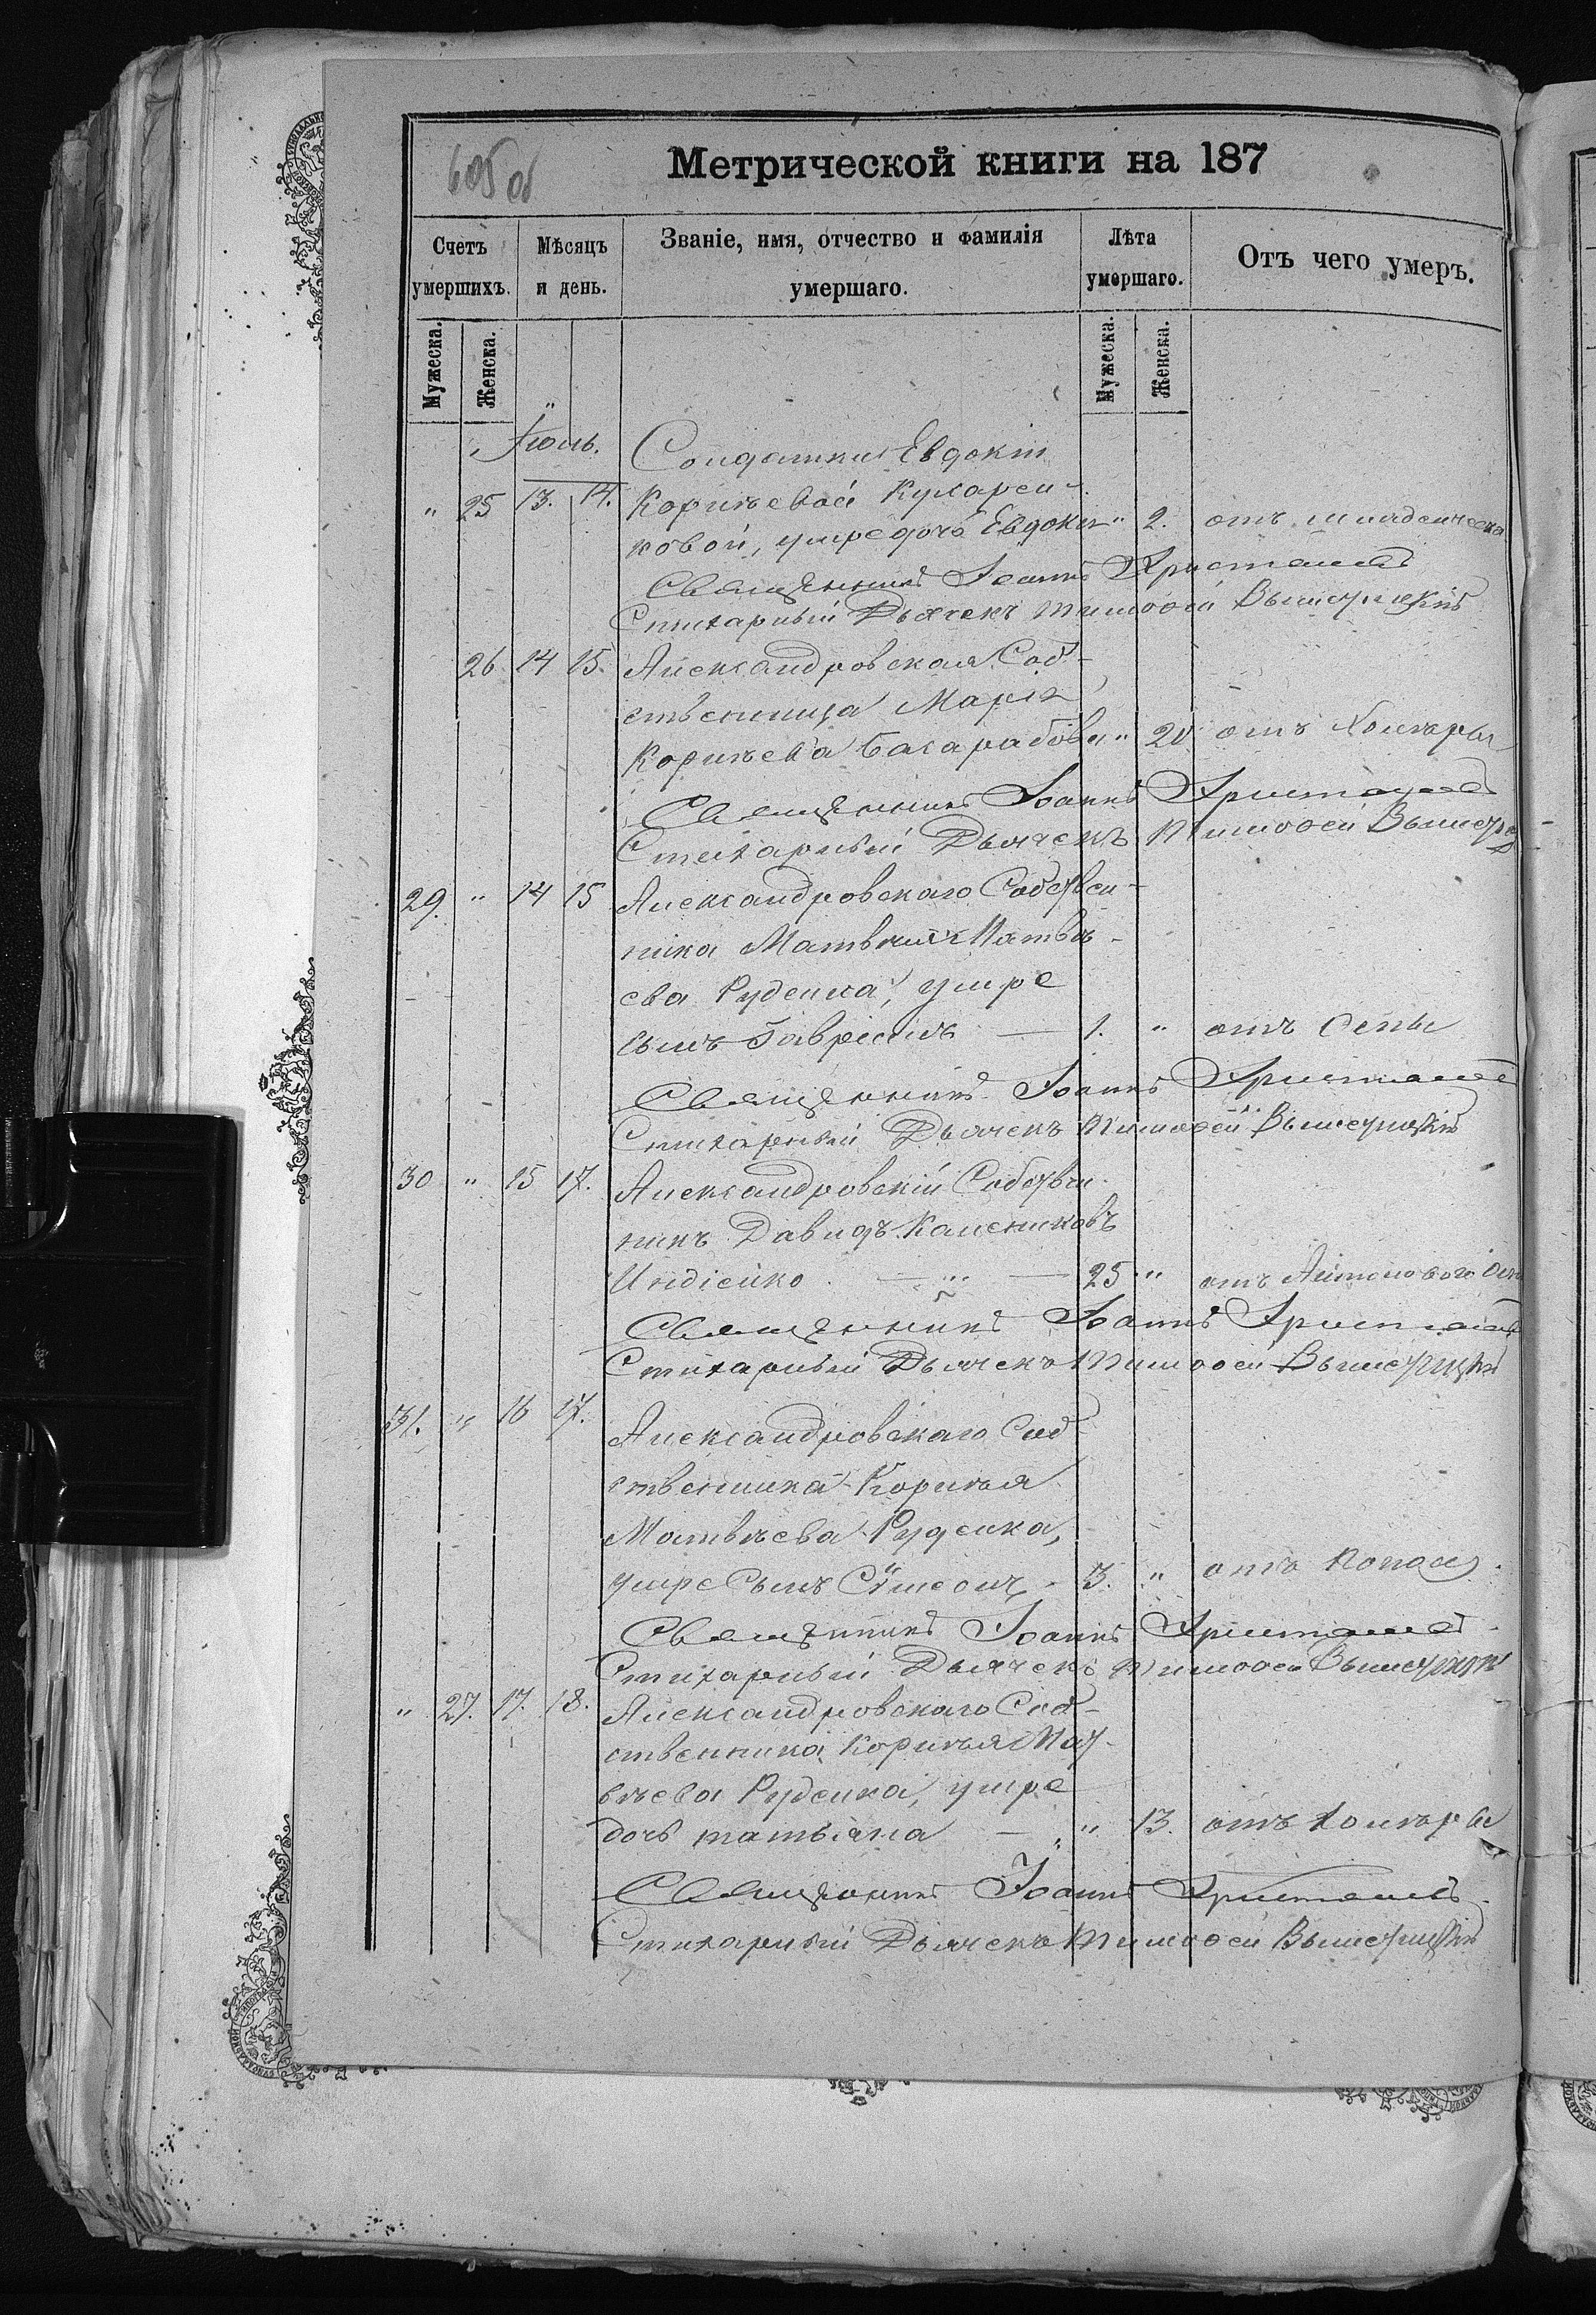 605 об
Метрической книги на 187
Счетъ умершихъ.
Мѣсяцъ и день.
Званіе, имя, отчество и фамилія умершаго.
Лѣта умершаго.
Отъ чего умеръ.
Мужеска.
Женска.
Мужеска.
Женска.
Іюль.
Солдатки Евдокіи
" 25 13. 14. Корнѣевой Кухарен-
ковой, умре дочь Евдокія " 2. отъ младенческа
Священникъ Іоаннъ
Стихарный Дьячекъ Тимоѳей
26 14 15. Александровская Соб-
ственница Марія
Корнѣева Басарабова " 20 отъ холеры
Священникъ Іоаннъ
Стихарный Дьячекъ Тимоѳей
29. " 14 15 Александровскаго Собствен-
ника Матвѣя Матвѣ-
ева Руденка, умре
сынъ Гавріилъ — 1. " отъ Оспы
Священникъ Іоаннъ
Стихарный Дьячекъ Тимоѳей
30 " 15 17. Александровскій Собствен-
никъ Давидъ Калениковъ
Индіейко — " — 25 " отъ
Священникъ Іоаннъ
Стихарный Дьячекъ Тимоѳей
31. " 16 17. Александровскаго Соб-
ственника Корнѣя
Матвѣева Руденка,
умре Сынъ Сѷмеонъ - 3. " отъ поноса
Священникъ Іоаннъ
Стихарный Дьячекъ Тимоѳей
" 27. 17. 18. Александровскаго Соб-
ственника Корнѣя Мат-
вѣева Руденка, умре
дочь татьяна — " 13. отъ холеры
Священникъ Іоаннъ
Стихарный Дьячекъ Тимоѳей